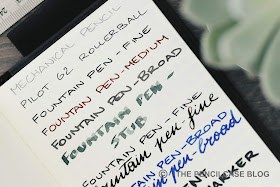 MECHANICAL PENCIL
PILOT G2 ROLLERBALL
FOUNTAIN PEN-FINE
FOUNTAIN PEN-MEDIUM
FOUNTAIN PEN-BROAD
FOUNTAIN PEN -
STUB
FOUNTAIN PEN - FINE
fountain pen fine
PEN-BROAD
pen-broad
© THE PENCILCASE BLOG